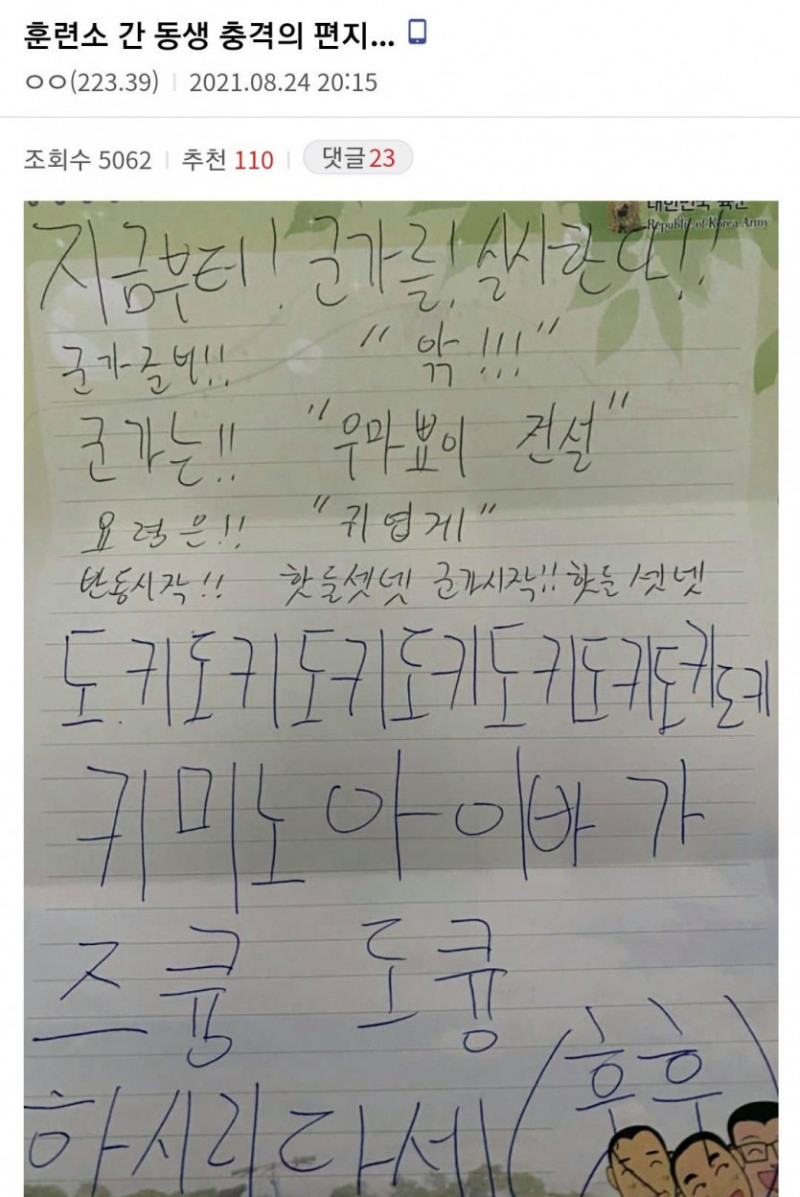 훈련소 간 동생 충격의 편지...
ㅇㅇ(223.39) 2021.08.24 20:15
조회수 5062 추천 110 댓글 23
대한민국 육군
Republic of Korea Army
지금부터! 군가를! 실시한다!!
군가준비!! "악!!!"
군가는!! "우마뾰이 전설"
요령은!! "귀엽게"
반동시작!! 핫둘셋넷 군가시작!! 핫둘셋넷
도키도키도키도키도키도키도키도키
키미노아이바가
즈큥 도큥
하시리다세(후후)